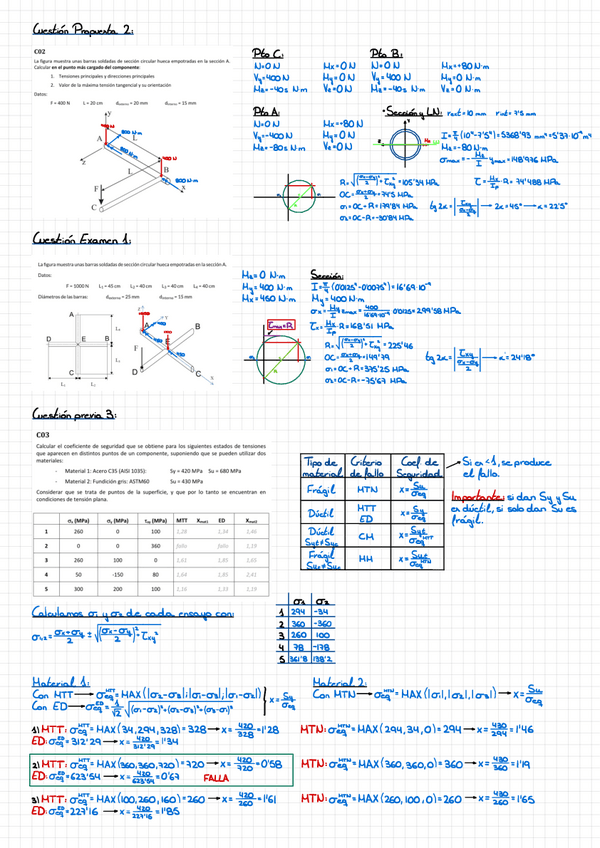 Cuestión Propuesta 2:
C02
La figura muestra unas barras soldadas de sección circular hueca empotradas en la sección A.
Calcular en el punto más cargado del componente:
1. Tensiones principales y direcciones principales
2. Valor de la máxima tensión tangencial y su orientación
Datos:
F = 400 N L = 20 cm d_exterior = 20 mm d_interior = 15 mm
Pto C:
N=0 N Mx=0 N
Vy=400 N My=0 N
Mz=-40s N·m Vz=0 N
Pto B:
N=0 N Mx=+80 N·m
Vy=400 N My=0 N·m
Mz=-40s N·m Vz=0 N·m
Pto A:
N=0 N Mx=+80 N
Vy=-400 N My=0 N
Mz=-80s N·m Vz=0 N
• Sección y LN: rext=10 mm rint=7'5 mm
I=π/4 (10⁴-7'5⁴)=5368'93 mm⁴=5'37·10⁻⁹ m⁴
Mz=-80 N·m
σmax=-Mz/I·ymax=148'976 MPa
R=√((σx-σy)/2)²+τxy²=105'34 MPa
τ=Mx/Ip·R=74'488 MPa
OC=(σx+σy)/2=74'5 MPa
σ1=OC+R=179'84 MPa
σ2=OC-R=-30'84 MPa
tg 2α=|τxy/((σx-σy)/2)| → 2α=45° → α=22'5°
Cuestión Examen 1:
La figura muestra unas barras soldadas de sección circular hueca empotradas en la sección A.
Datos:
F = 1000 N L₁ = 45 cm L₂ = 40 cm L₃ = 40 cm L₄ = 40 cm
Diámetros de las barras: d_exterior = 25 mm d_interior = 15 mm
Mz=0 N·m
My=400 N·m
Mx=450 N·m
Sección:
I=π/4 (0'0125⁴-0'0075⁴)=16'69·10⁻⁹
My=400 N·m
σx=My/I zmax=400/16'69·10⁻⁹ 0'0125=299'58 MPa
τ=Mx/Ip·R=168'51 MPa
τmax=R
R=√((σx-σy)/2)²+τxy²=225'46
OC=(σx+σy)/2=149'79
σ1=OC+R=375'25 MPa
σ2=OC-R=-75'67 MPa
tg 2α=|τxy/((σx-σy)/2)| → α=24'18°
Cuestión previa 3:
C03
Calcular el coeficiente de seguridad que se obtiene para los siguientes estados de tensiones
que aparecen en distintos puntos de un componente, suponiendo que se pueden utilizar dos
materiales:
- Material 1: Acero C35 (AISI 1035): Sy = 420 MPa Su = 680 MPa
- Material 2: Fundición gris: ASTM60 Su = 430 MPa
Considerar que se trata de puntos de la superficie, y que por lo tanto se encuentran en
condiciones de tensión plana.
σx (MPa) σy (MPa) τxy (MPa) MTT Xmat1 ED Xmat2
1 260 0 100 1,28 1,34 1,46
2 0 0 360 falla falla 1,19
3 260 100 0 1,61 1,85 1,65
4 50 -150 80 1,64 1,85 2,41
5 300 200 100 1,16 1,33 1,19
Tipo de material Criterio de fallo Coef de Seguridad
Frágil MTN x=Su/σeq
Dúctil MTT ED x=Sy/σeq
Dúctil Syt≠Syc CM x=Syt/σeq MTT
Frágil Sut≠Suc MM x=Sut/σeq MTN
→ Si es <1, se produce
el fallo.
Importante: si dan Sy y Su
es dúctil, si solo dan Su es
frágil.
Calculamos σ1 y σ2 de cada ensayo con:
σ1,2=(σx+σy)/2±√((σx-σy)/2)²+τxy²
σ1 σ2
1 294 -34
2 360 -360
3 260 100
4 78 -178
5 361'8 138'2
Material 1:
Con MTT → σeq^MTT=MAX(|σ2-σ3|;|σ1-σ3|;|σ1-σ2|)
Con ED → σeq^ED=1/√2 √(σ1-σ2)²+(σ2-σ3)²+(σ3-σ1)² } x=Sy/σeq
Material 2:
Con MTN → σeq^MTN=MAX(|σ1|,|σ2|,|σ3|) → x=Su/σeq
1) MTT: σeq^MTT=MAX(34,294,328)=328 → x=420/328=1'28
MTN: σeq^MTN=MAX(294,34,0)=294 → x=430/294=1'46
ED: σeq^ED=312'29 → x=420/312'29=1'34
2) MTT: σeq^MTT=MAX(360,360,720)=720 → x=420/720=0'58
MTN: σeq^MTN=MAX(360,360,0)=360 → x=430/360=1'19
ED: σeq^ED=623'54 → x=420/623'54=0'67 FALLA
3) MTT: σeq^MTT=MAX(100,260,160)=260 → x=420/260=1'61
MTN: σeq^MTN=MAX(260,100,0)=260 → x=430/260=1'65
ED: σeq^ED=227'16 → x=420/227'16=1'85